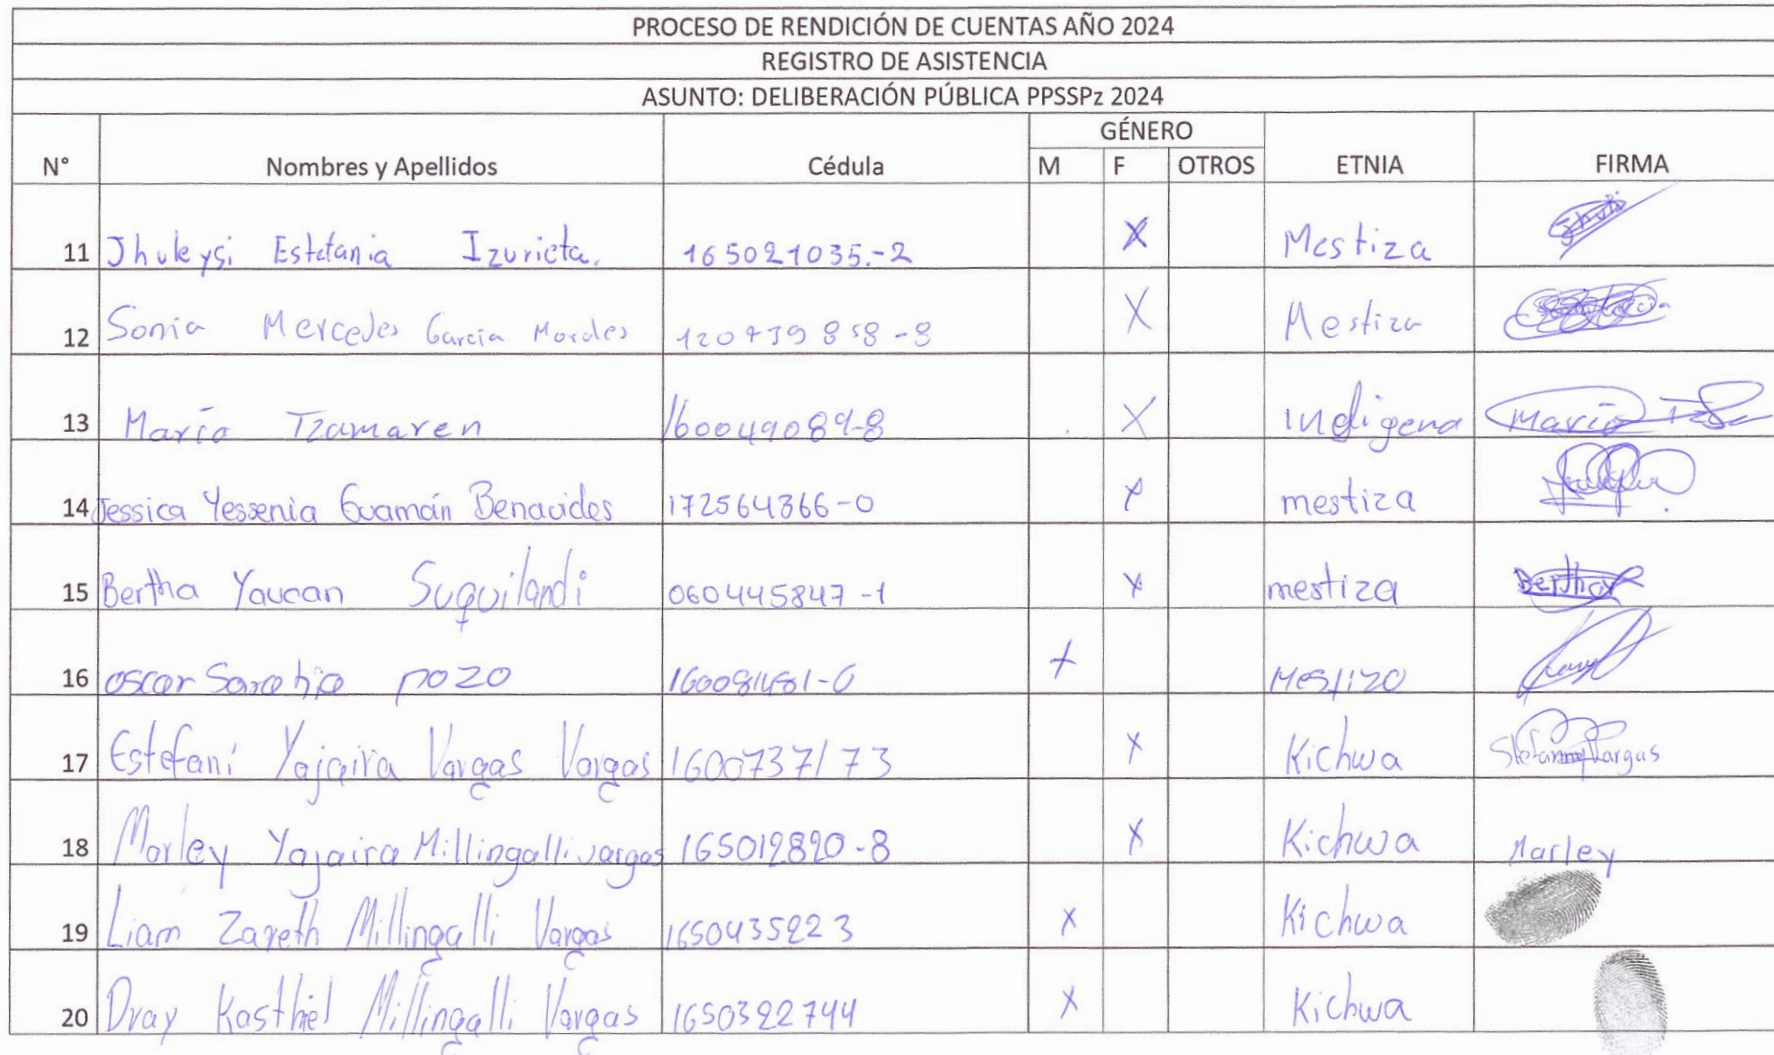 PROCESO DE RENDICIÓN DE CUENTAS AÑO 2024
REGISTRO DE ASISTENCIA
ASUNTO: DELIBERACIÓN PÚBLICA PPSSPz 2024
GÉNERO
N° Nombres y Apellidos Cédula M F OTROS ETNIA FIRMA
11 Jhuleysi Estefania Izurieta. 165021035.-2 X Mestiza
12 Sonia Mercedes García Morales X Mestiza
13 María Tzamaren 160049089-8 X indigena María
14 Jessica Yessenia Guamán Benavides 172564366-0 X mestiza
15 Bertha Yaucan Suquilandi 060445847-1 X mestiza Bertha
16 oscar Sarabia pozo X Mestizo
17 Estefani Yajaira Vargas Vargas 1600737173 X Kichwa Stefanny Vargas
18 Marley Yajaira Millingalli vargas 165012820-8 X Kichwa Marley
19 Liam Zareth Millingalli Vargas 1650435223 X Kichwa
20 Dray Kasthiel Millingalli Vargas 1650322744 X Kichwa